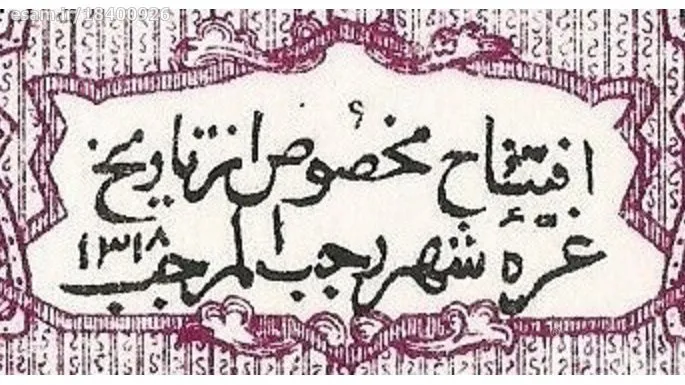 esam.ir/18400926
افتتاح مخصوص از تاریخ
غرّه شهر رجب المرجب ۱۳۱۸